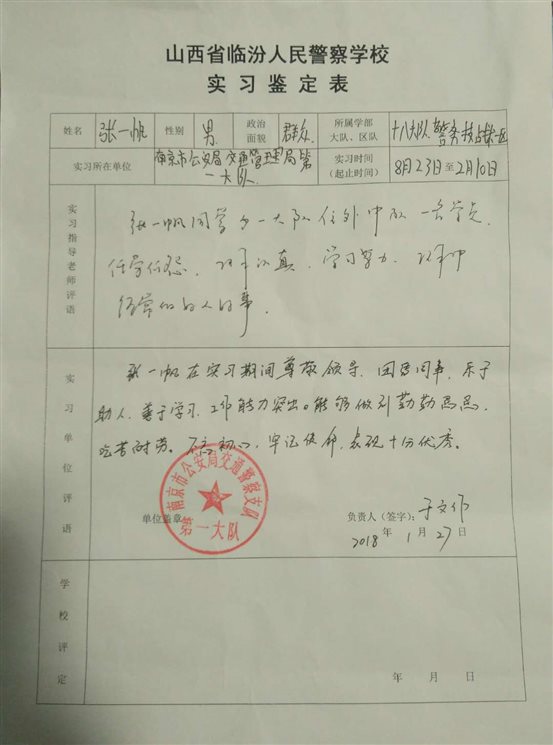 山西省临汾人民警察学校
实习鉴定表
姓名 张一帆 性别 男 政治面貌 群众 所属学部大队、区队 十八大队 警务技战铁一区
实习所在单位 南京市公安局交通管理局第一大队 实习时间（起止时间） 8月23日至2月10日
实习指导老师评语
张一帆同学
任劳任怨，认真，学习努力，
经常
实习单位评语
张一帆在实习期间尊敬领导、团结同事、乐于
助人、善于学习、工作能力突出。能够做到勤勤恳恳，
吃苦耐劳。不忘初心，牢记使命，表现十分优秀。
南京市公安局交通警察支队
第一大队
单位盖章
负责人（签字）：于文作
2018年1月27日
学校评定
年 月 日